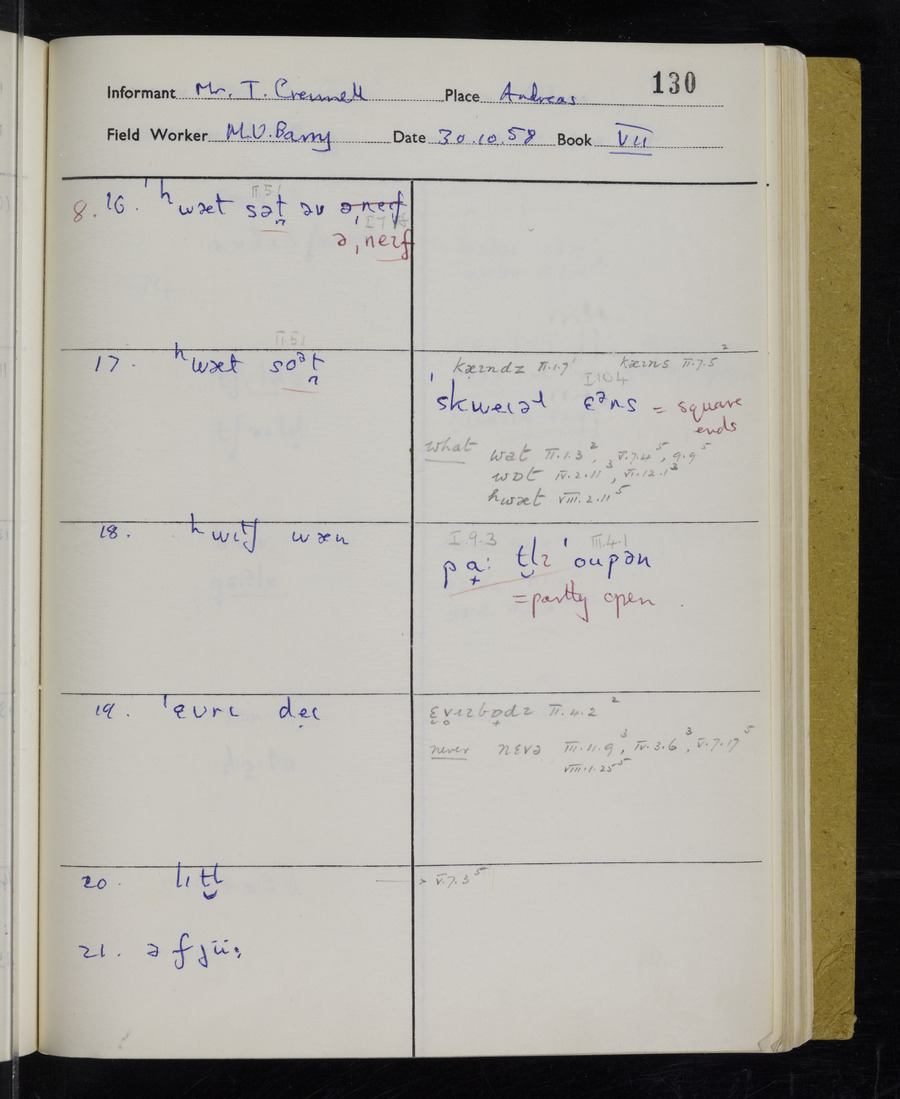 130
Informant Mr. T. Crennell Place Andreas
Field Worker M.V. Barry Date 30.10.58 Book VII
8. 16. ʰwæt sət̪ əv
II.5.1
ə ˌneɪf
17. ʰwæt soᵊt̪
kæɪndz II.1.7¹ kæɪns II.7.5²
I.10.4
ˈskweɪəɫ ɛᵊns = square
ends
what wat II.1.3², V.7.4⁵, 9.9⁵
wɒt IV.2.11³, VI.12.1³
hwæt VIII.2.11⁵
18. ʰwɪtʃ wæn
I.9.3 III.4.1
pa̟: tlɪ ˈoupən
= partly open
19. ˈɛvrɪ deɪ
ɛvɪɪbɒdɪ II.4.2²
never nɛvə III.11.9³, IV.3.6³, V.7.17⁵
VIII.1.25⁵
20. lɪtl → V.7.3⁵
21. ə fjüː